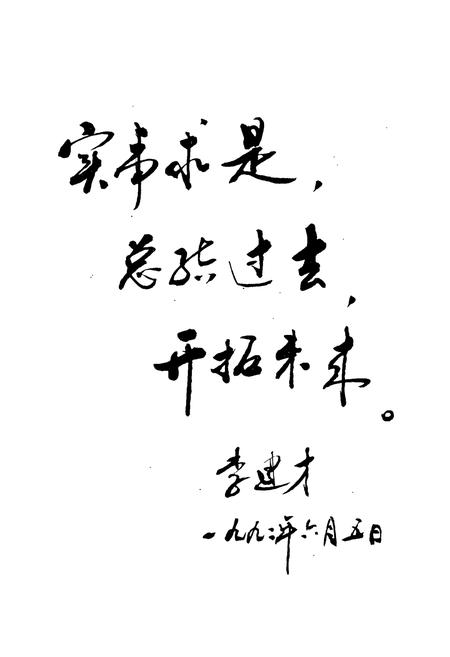 实事求是，
总结过去，
开拓未来。
李建才
一九九二年六月五日